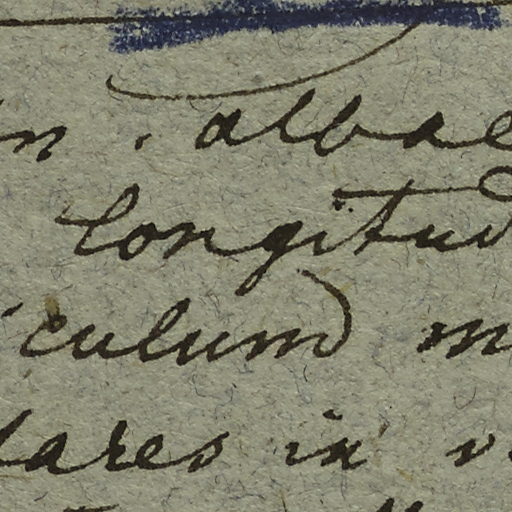 n. albae
longitud
culum m
lares in v